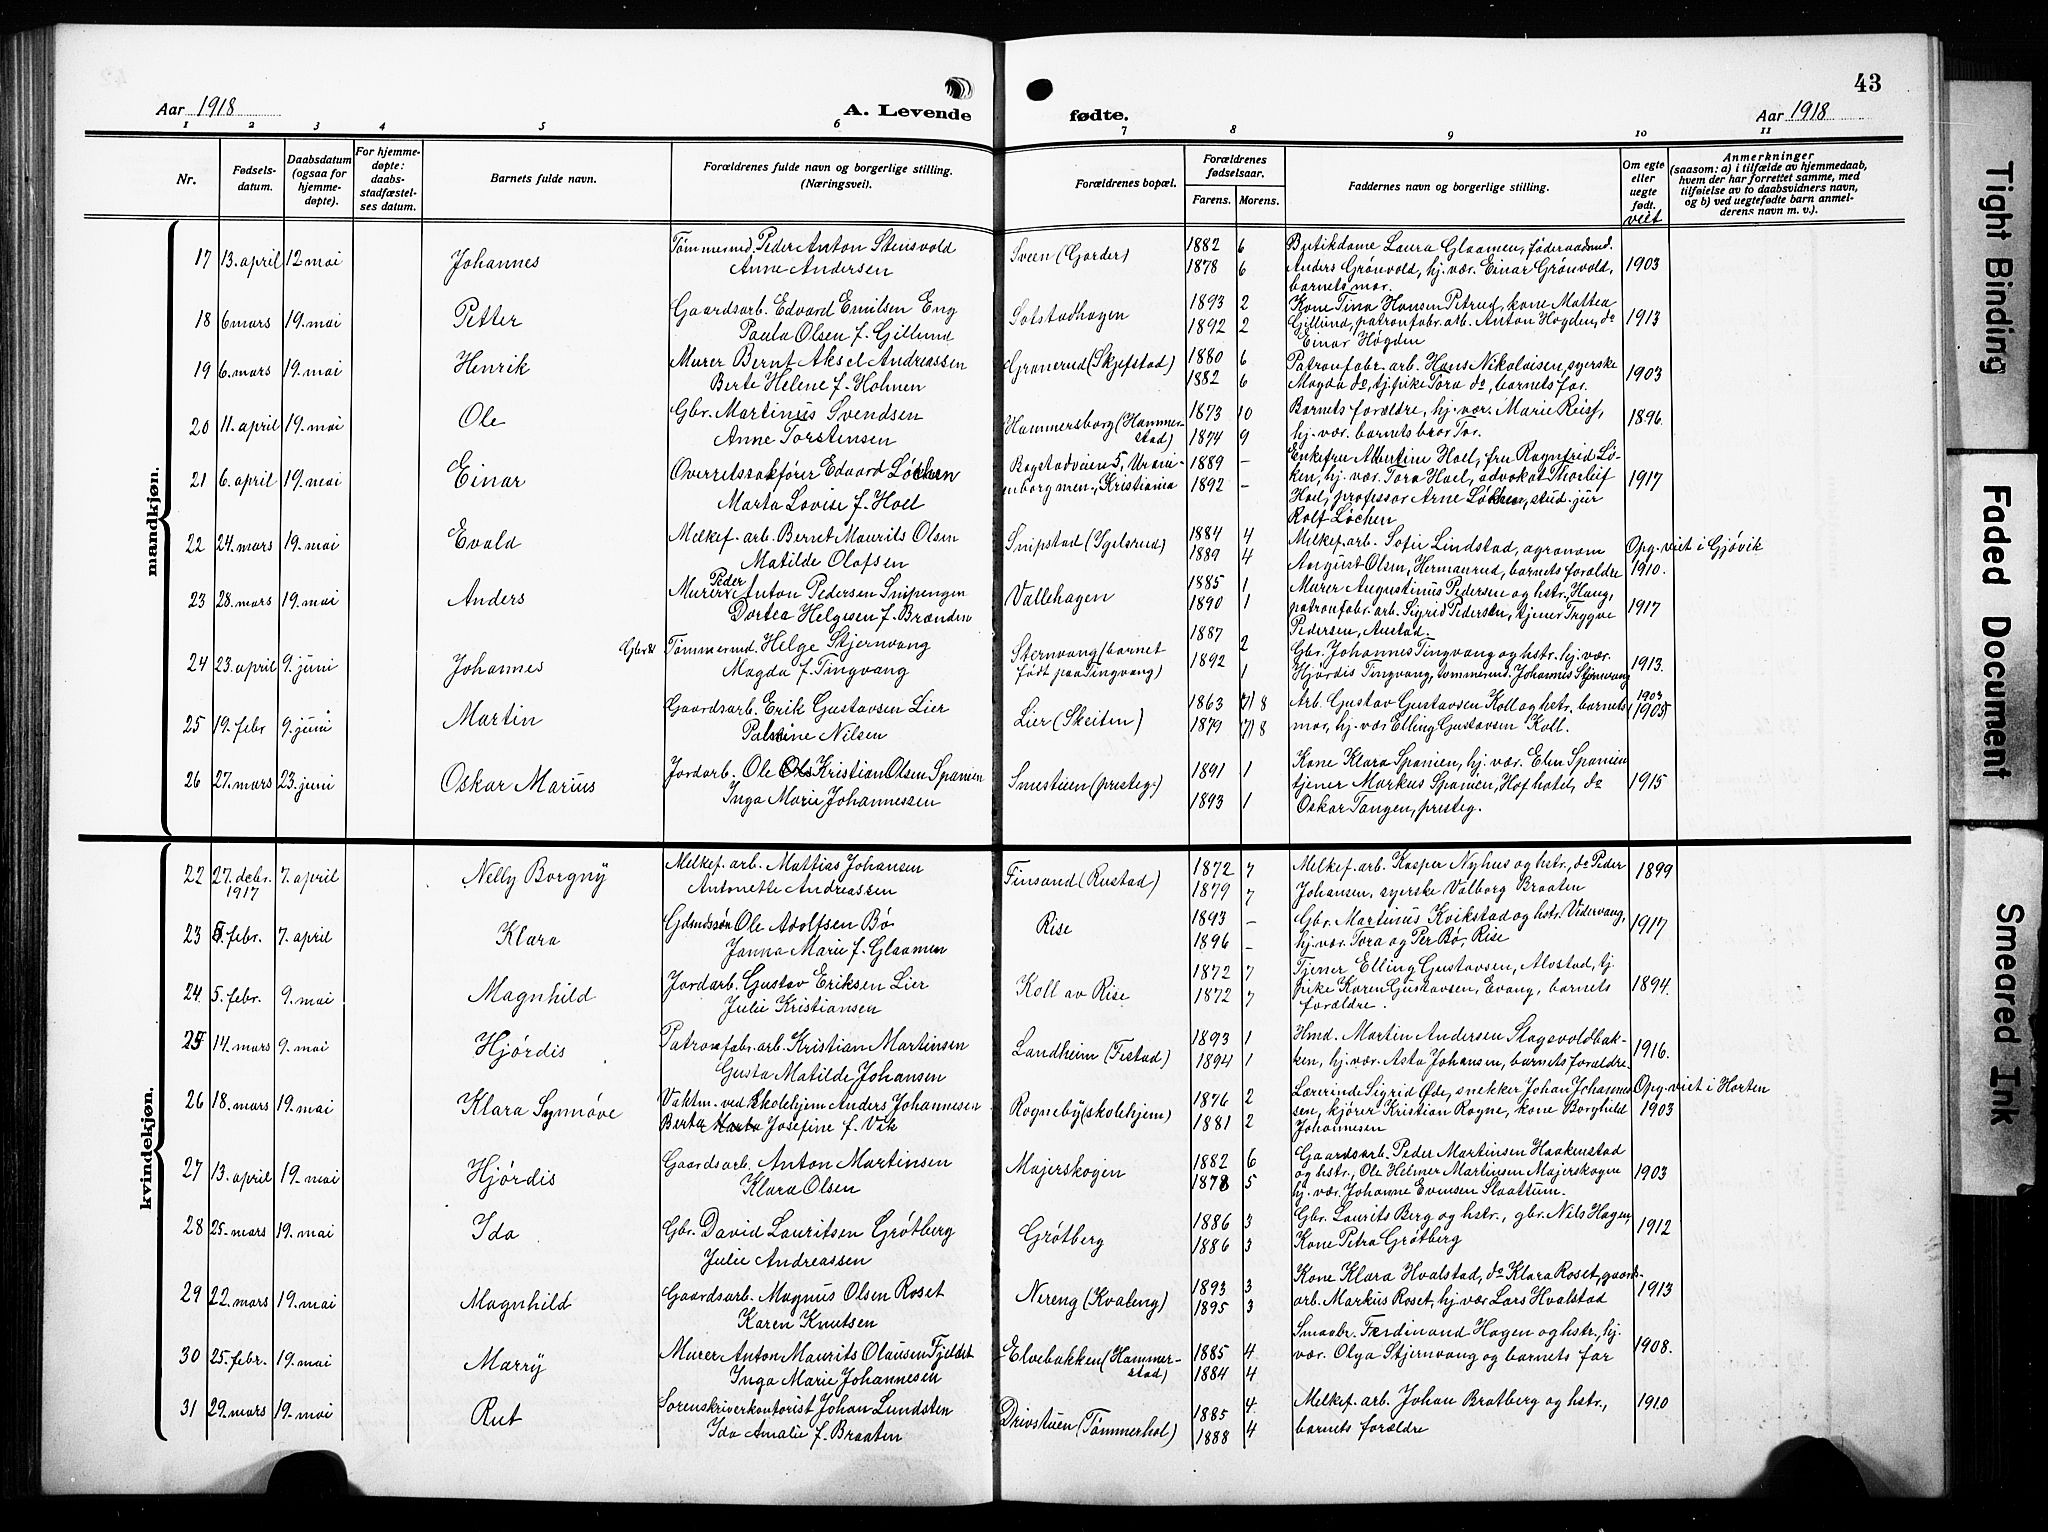 43
Aar 1918 A. Levende fødte. Aar 1918
1 2 3 4 5 6 7 8 9 10 11
Nr.
Fødsels-
datum.
Daabsdatum
(ogsaa for
hjemme-
døpte).
For hjemme-
døpte:
daabs-
stadfæstel-
ses datum.
Barnets fulde navn.
Forældrenes fulde navn og borgerlige stilling.
(Næringsvei).
Forældrenes bopæl.
Forældrenes
fødselsaar.
Farens. Morens.
Faddernes navn og borgerlige stilling.
Om egte
eller
uegte
født.
viet
Anmerkninger
(saasom: a) i tilfælde av hjemmedaab,
hvem der har forrettet samme, med
tilføielse av to daabsvidners navn,
og b) ved uegtefødte barn anmel-
derens navn m. v.).
mandkjøn.
17 13. april 12 mai Johannes
Tømmermd. Peder Anton Stensvold
Anne Andersen
Sveen (Gorder)
1882 6
1878 6
Butikdame Laura Glaamen, føderaadmd.
Anders Grönvold, hj. vær. Einar Grönvold,
barnets mor.
1903
18 6 mars 19. mai Petter
Gaardsarb. Edvard Emilsen Eng
Paula Olsen f. Gillund
Sotstadhagen
1893 2
1892 2
Kone Tina Hansen Petrud, kone Mattea
Gillund, patronfabr. arb. Anton Høgden, do
Einar Høgden
1913
19 6. mars 19. mai Henrik
Murer Bernt Aksel Andreassen
Berte Helene f. Holmen
Granerud (Skjefstad)
1880 6
1882 6
Patronfabr. arb. Hans Nikolaisen, syerske
Magda do, tj. pike Tora do, barnets far.
1903
20 11. april 19. mai Ole
Gbr. Martinus Svendsen
Anne Torstensen
Hammersborg (Hammer-
stad)
1873 10
1874 9
Barnets forældre, hj. vær. Marie Reisf,
hj. vær. barnets bror Tor.
1896.
21 6. april 19. mai Einar
Overretssakfører Edvard Løchen
Marta Lovise f. Hoel
Bogstadveien 5, Urani-
enborg men., Kristiania
1889 –
1892 –
Enkefru Albertine Hoel, fru Ragnfrid Lø-
ken, hj. vær. Tora Hoel, advokat Thorleif
Hoel, professor Arne Løchen, stud. jur
Rolf Løchen
1917
22 24. mars 19. mai Evald
Melkef. arb. Bernt Maurits Olsen
Matilde Olafsen
Snipstad (Ygelsrud)
1884 4
1889 4
Melkef. arb. Sofie Lindstad, agronom
August Olsen, Hermanrud, barnets forældre
Opg. viet i Gjøvik
1910.
23 28. mars 19. mai Anders
Murer Peder Anton Pedersen Snipengen
Dortea Helgesen f. Brænden
Vallehagen
1885 1
1890 1
Murer Augustinus Pedersen og hstr., Haug,
patronfabr. arb. Sigrid Pedersen, tjener Trygve
Pedersen, Austad.
1917
24 23. april 9. juni Johannes
Gbr & Tømmermd. Helge Stjernvang
Magda f. Tingvang
Sternvang (barnet
født paa Tingvang)
1887 2
1892 1
Gbr. Johannes Tingvang og hstr. hj. vær.
Hjördis Tingvang, tømmermd. Johannes Stjernvang
1913.
25 19. febr 9. juni Martin
Gaardsarb. Erik Gustavsen Lier
Palmine Nilsen
Lier (Skeiten)
1863 7/8
1879 7/8
Arb. Gustav Gustavsen Koll og hstr. barnets
mor, hj. vær Elling Gustavsen Koll.
1903
1905
26 27. mars 23. juni Oskar Marius
Jordarb. Ole Kristian Olsen Spanien
Inga Marie Johannessen
Smestuen (presteg.)
1891 1
1893 1
Kone Klara Spanien, hj. vær. Elen Spanien
tjener Markus Spanien, Hof hotel, do
Oskar Tangen, presteg.
1915
kvindekjøn.
22 27. debr. 1917 7. april Nelly Borgny
Melkef. arb. Mattias Johansen
Antonette Andreassen
Finsand (Rustad)
1872 7
1879 7
Melkef. arb. Kasper Nyhus og hstr., do Peder
Johansen, syerske Valborg Braaten
1899
23 8. febr. 7. april Klara
Gdmdssøn Ole Adolfsen Bø
Janna Marie f. Glaamen
Rise
1893 –
1896 –
Gbr. Martinus Kvikstad og hstr. Vidervang,
hj. vær. Tora og Per Bø, Rise
1917
24. 5. febr. 9. mai Magnhild
Jordarb. Gustav Eriksen Lier
Julie Kristiansen
Koll av Rise
1872 7
1872 7
Tjener Elling Gustavsen, Alvstad, tj.
pike Karen Gustavsen, Evang, barnets
forældre.
1894.
25 14. mars 9. mai Hjørdis
Patronfabr. arb. Kristian Martinsen
Gusta Matilde Johansen
Landheim (Fistad)
1893 1
1894 1
Hmd. Martin Andersen Stagsvoldbak-
ken, hj. vær. Asta Johansen, barnets forældre.
1916.
26 18. mars 19. mai Klara Synnøve
Vaktm. ved skolehjem Anders Johannesen
Berta Josefine f. Vik
Rogneby (skolehjem)
1876 2
1881 2
Lærerinde Sigrid Øde, snekker Johan Johannes
sen, kjører Kristian Rogne, kone Borghild
Johannesen
Opg. viet i Horten
1903
27 13. april 19. mai Hjørdis
Gaardsarb. Anton Martinsen
Klara Olsen
Majerskogen
1882 6
1878 5
Gaardsarb. Peder Martinsen Haakenstad
og hstr., Ole Helmer Martinsen Majerskogen
hj. vær. Johanne Evensen Slaattum.
1903
28 25. mars 19. mai Ida
Gbr. David Lauritsen Grøtberg
Julie Andreassen
Grøtberg
1886 3
1886 3
Gbr. Laurits Berg og hstr., gbr. Nils Hagen,
Kone Petra Grøtberg
1912
29 22. mars 19. mai Magnhild
Gaardsarb. Magnus Olsen Roset
Karen Knutsen
Nereng (Kvaleng)
1893 3
1895 3
Kone Klara Hvalstad, do Klara Roset, gaards-
arb. Markus Roset, hj. vær Lars Hvalstad
1913
30 25. febr. 19. mai Marry
Murer Anton Maurits Olausen Fjeldet
Inga Marie Johannesen
Elvebakken (Hammer-
stad)
1885 4
1884 4
Smaabr. Ferdinand Hagen og hstr., hj.
vær. Olga Stjernvang og barnets far
1908.
31 29. mars 19. mai Rut
Sorenskriverkontorist Johan Lundsten
Ida Amalie f. Braaten
Drivstuen (Tømmerhol)
1885 4
1888 4
Melkef. arb. Johan Bratberg og hstr.,
barnets forældre
1910
Tight Binding
Faded Document
Smeared Ink